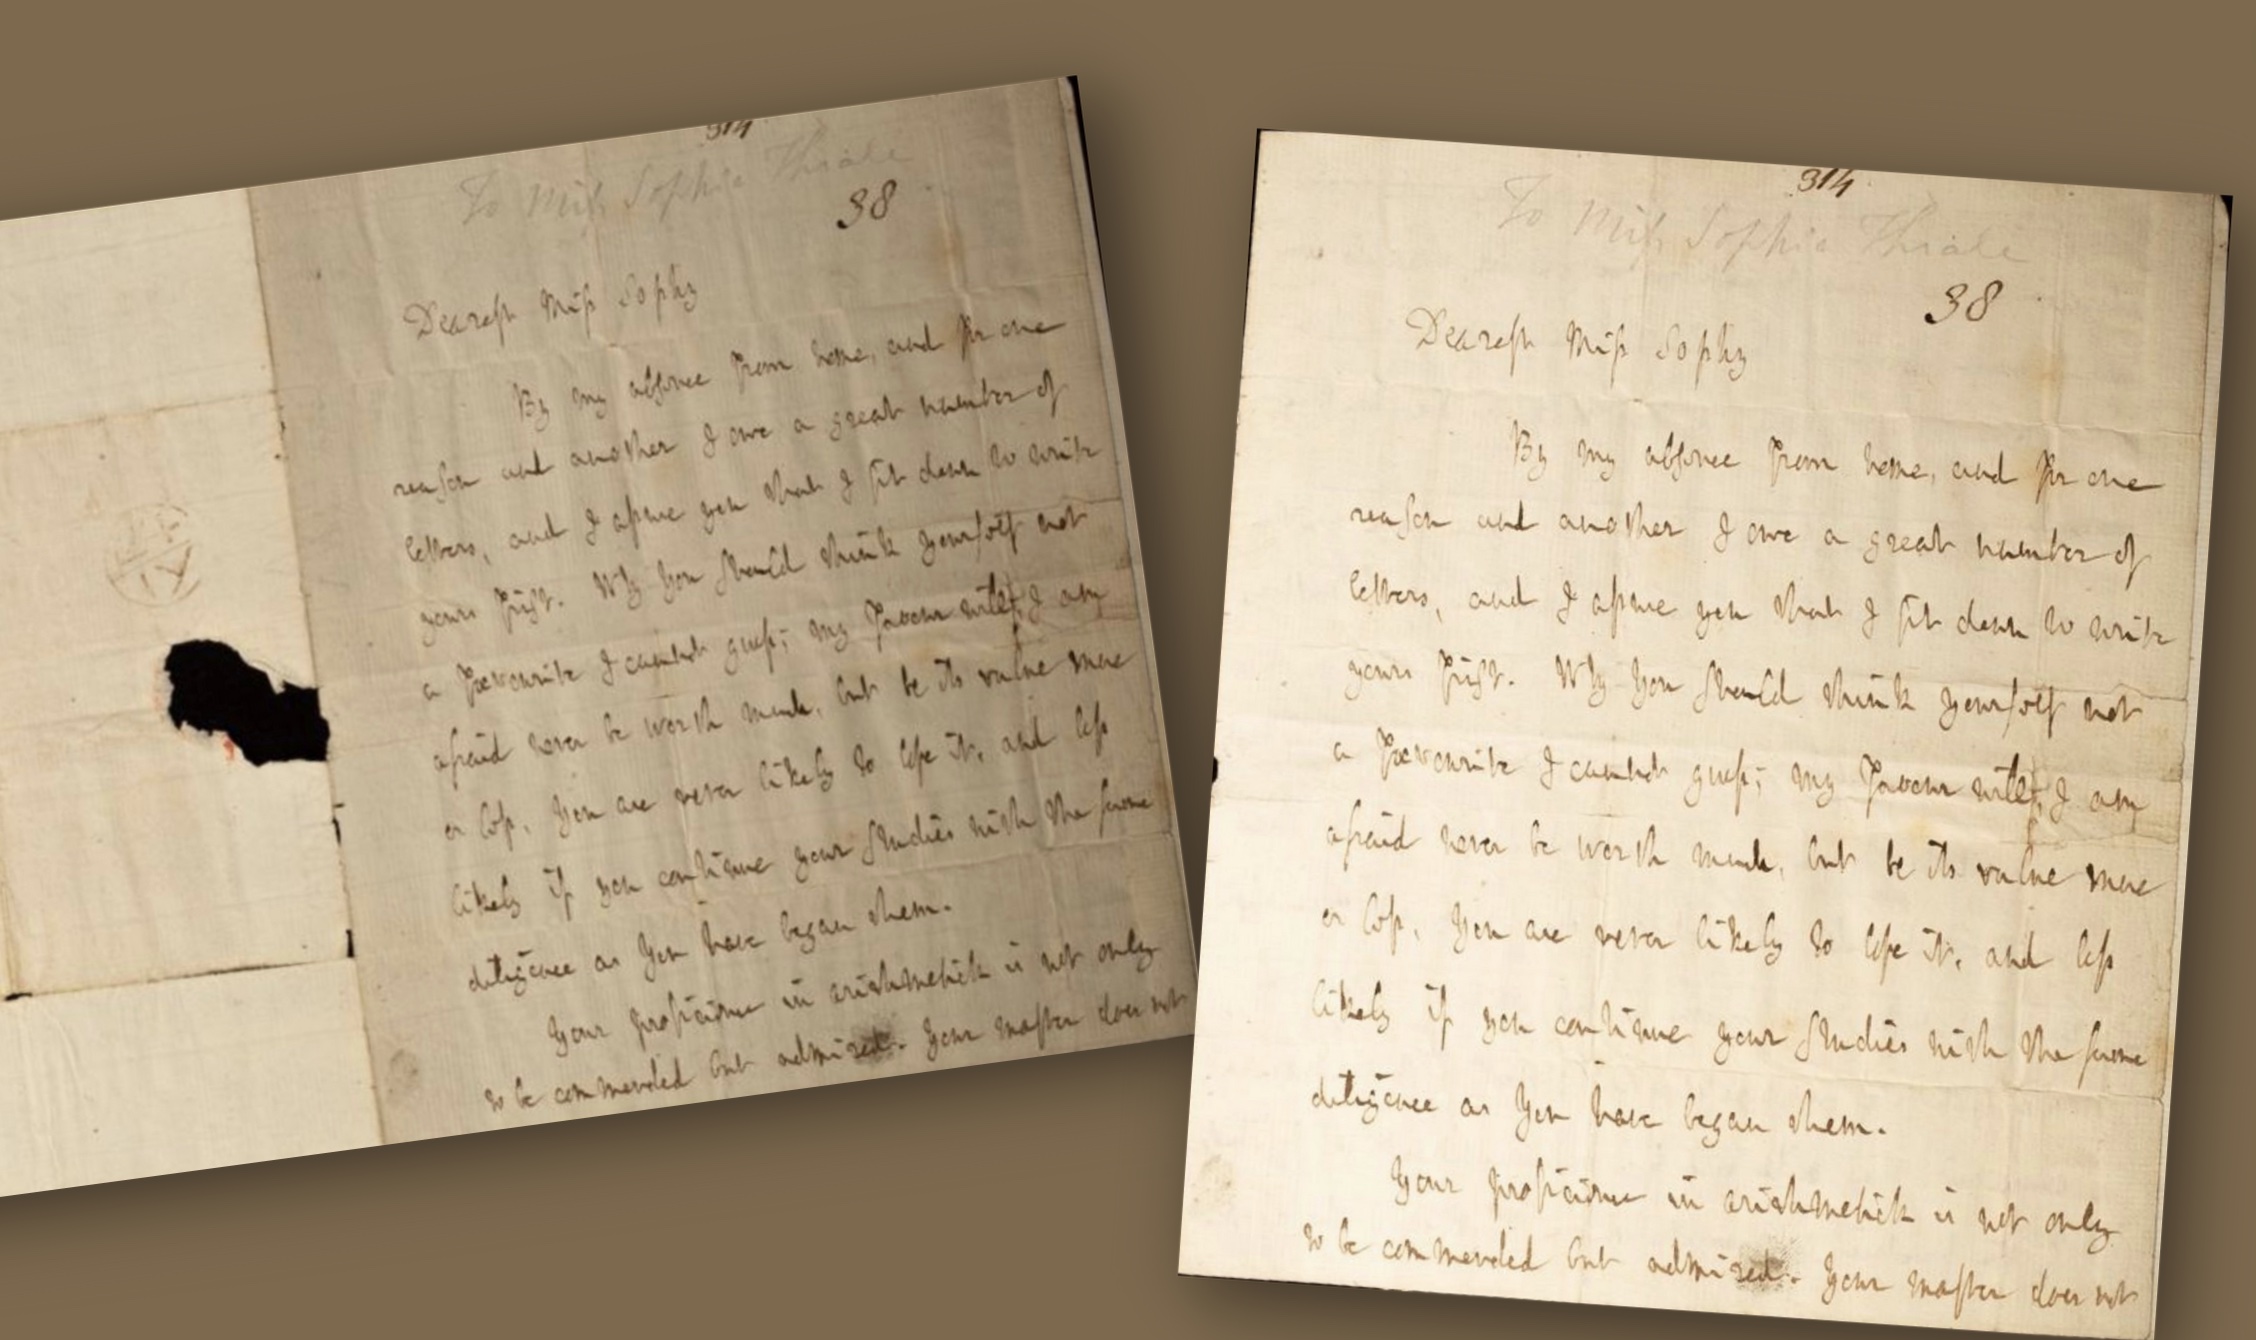 314
To Miss Sophia Thrale
38
Dearest Miss Sophy
By my absence from home, and for one
reason and another I owe a great number of
letters, and I assure you that I sit down to write
yours first. Why you should think yourself not
a favourite I cannot guess; my favour will, I am
afraid never be worth much, but be its value more
or less, you are never likely to lose it, and less
likely if you continue your studies with the same
diligence as you have began them.
Your proficience in arithmetick is not only
to be commended but admired. Your master does not
314
To Miss Sophia Thrale
38
Dearest Miss Sophy
By my absence from home, and for one
reason and another I owe a great number of
letters, and I assure you that I sit down to write
yours first. Why you should think yourself not
a favourite I cannot guess; my favour will, I am
afraid never be worth much, but be its value more
or less, you are never likely to lose it, and less
likely if you continue your studies with the same
diligence as you have began them.
Your proficience in arithmetick is not only
to be commended but admired. Your master does not